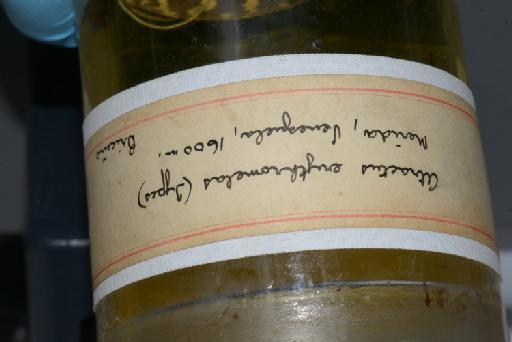 Atractus erythromelas (Types)
Merida, Venezuela, 1600 m.
Briceño